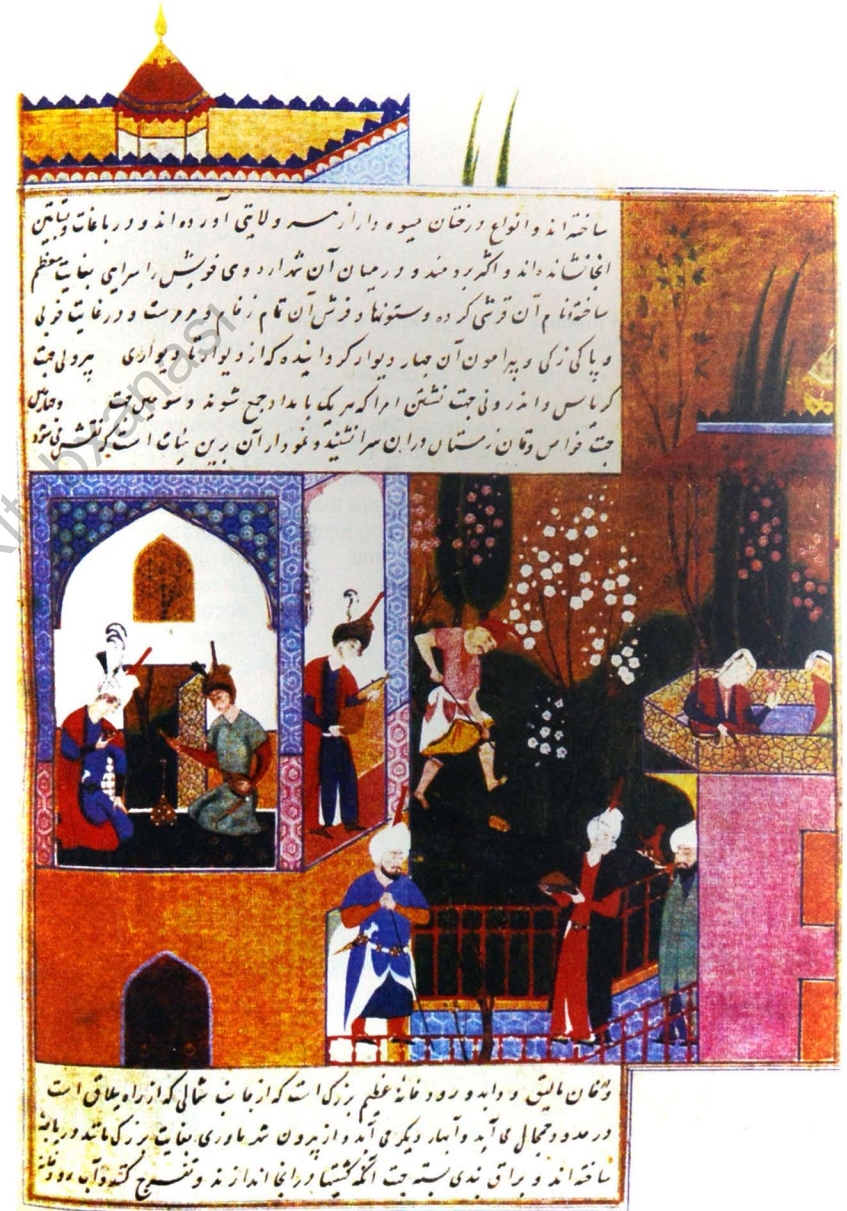 ساخته اند و انواع درختان میوه دار از هر ولایتی آورده اند و در باغات و بساتین
انجا نشانده اند و اکثر برومند و در میان آن شهر اردوی خویش را سرایی بغایت معظم
ساخته نام آن قرشی کرده و ستونها و فرش آن تمام رخام و مرمرست و در غایت خوبی
و پاکیزکی و پیرامون آن چهار دیوار کردانیده که از دیوار تا دیواری بیرونی جهت
کریاس و اندرونی جهت نشستن امرا که هر یک بامداد جمع شوند و سومین جهت
جهت خواص و قاآن زمستان در ان سرا نشیند و نمودار آن برین هیات است که نقش
و خان بالیق و دایدو رودخانه عظیم بزرگ است که از جانب شمالی که از راه ییلاق است
در حدود می آید و آبهای دیکر می آید و از بیرون شهر ناوری بغایت بزرگ مانند دریاچه
ساخته اند و براق بندی بسته جهت آنکه کشتیها در انجا اندازند و تفرج کنند و آب رودخانه
kitabxanası